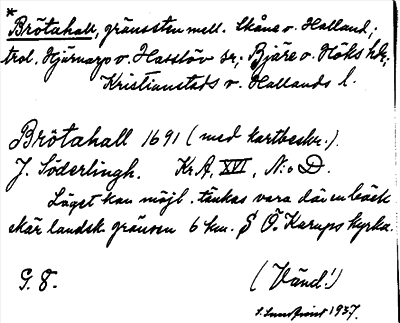 *
Brötahall, gränssten mell. Skåne o. Halland;
trol. Hjärnarp o. Hasslöv sr; Bjäre o. Höks hdr;
Kristianstads o. Hallands l.
Brötahall 1691 (med kartbeskr.).
J. Söderlingh. Kr.A, XVI, N:o D.
Läget kan möjl. tänkas vara där en bäck
skär landsk. gränsen 6 km. S Ö. Karups kyrka.
G. 8. (Vänd!)
S. Lundqvist 1937.